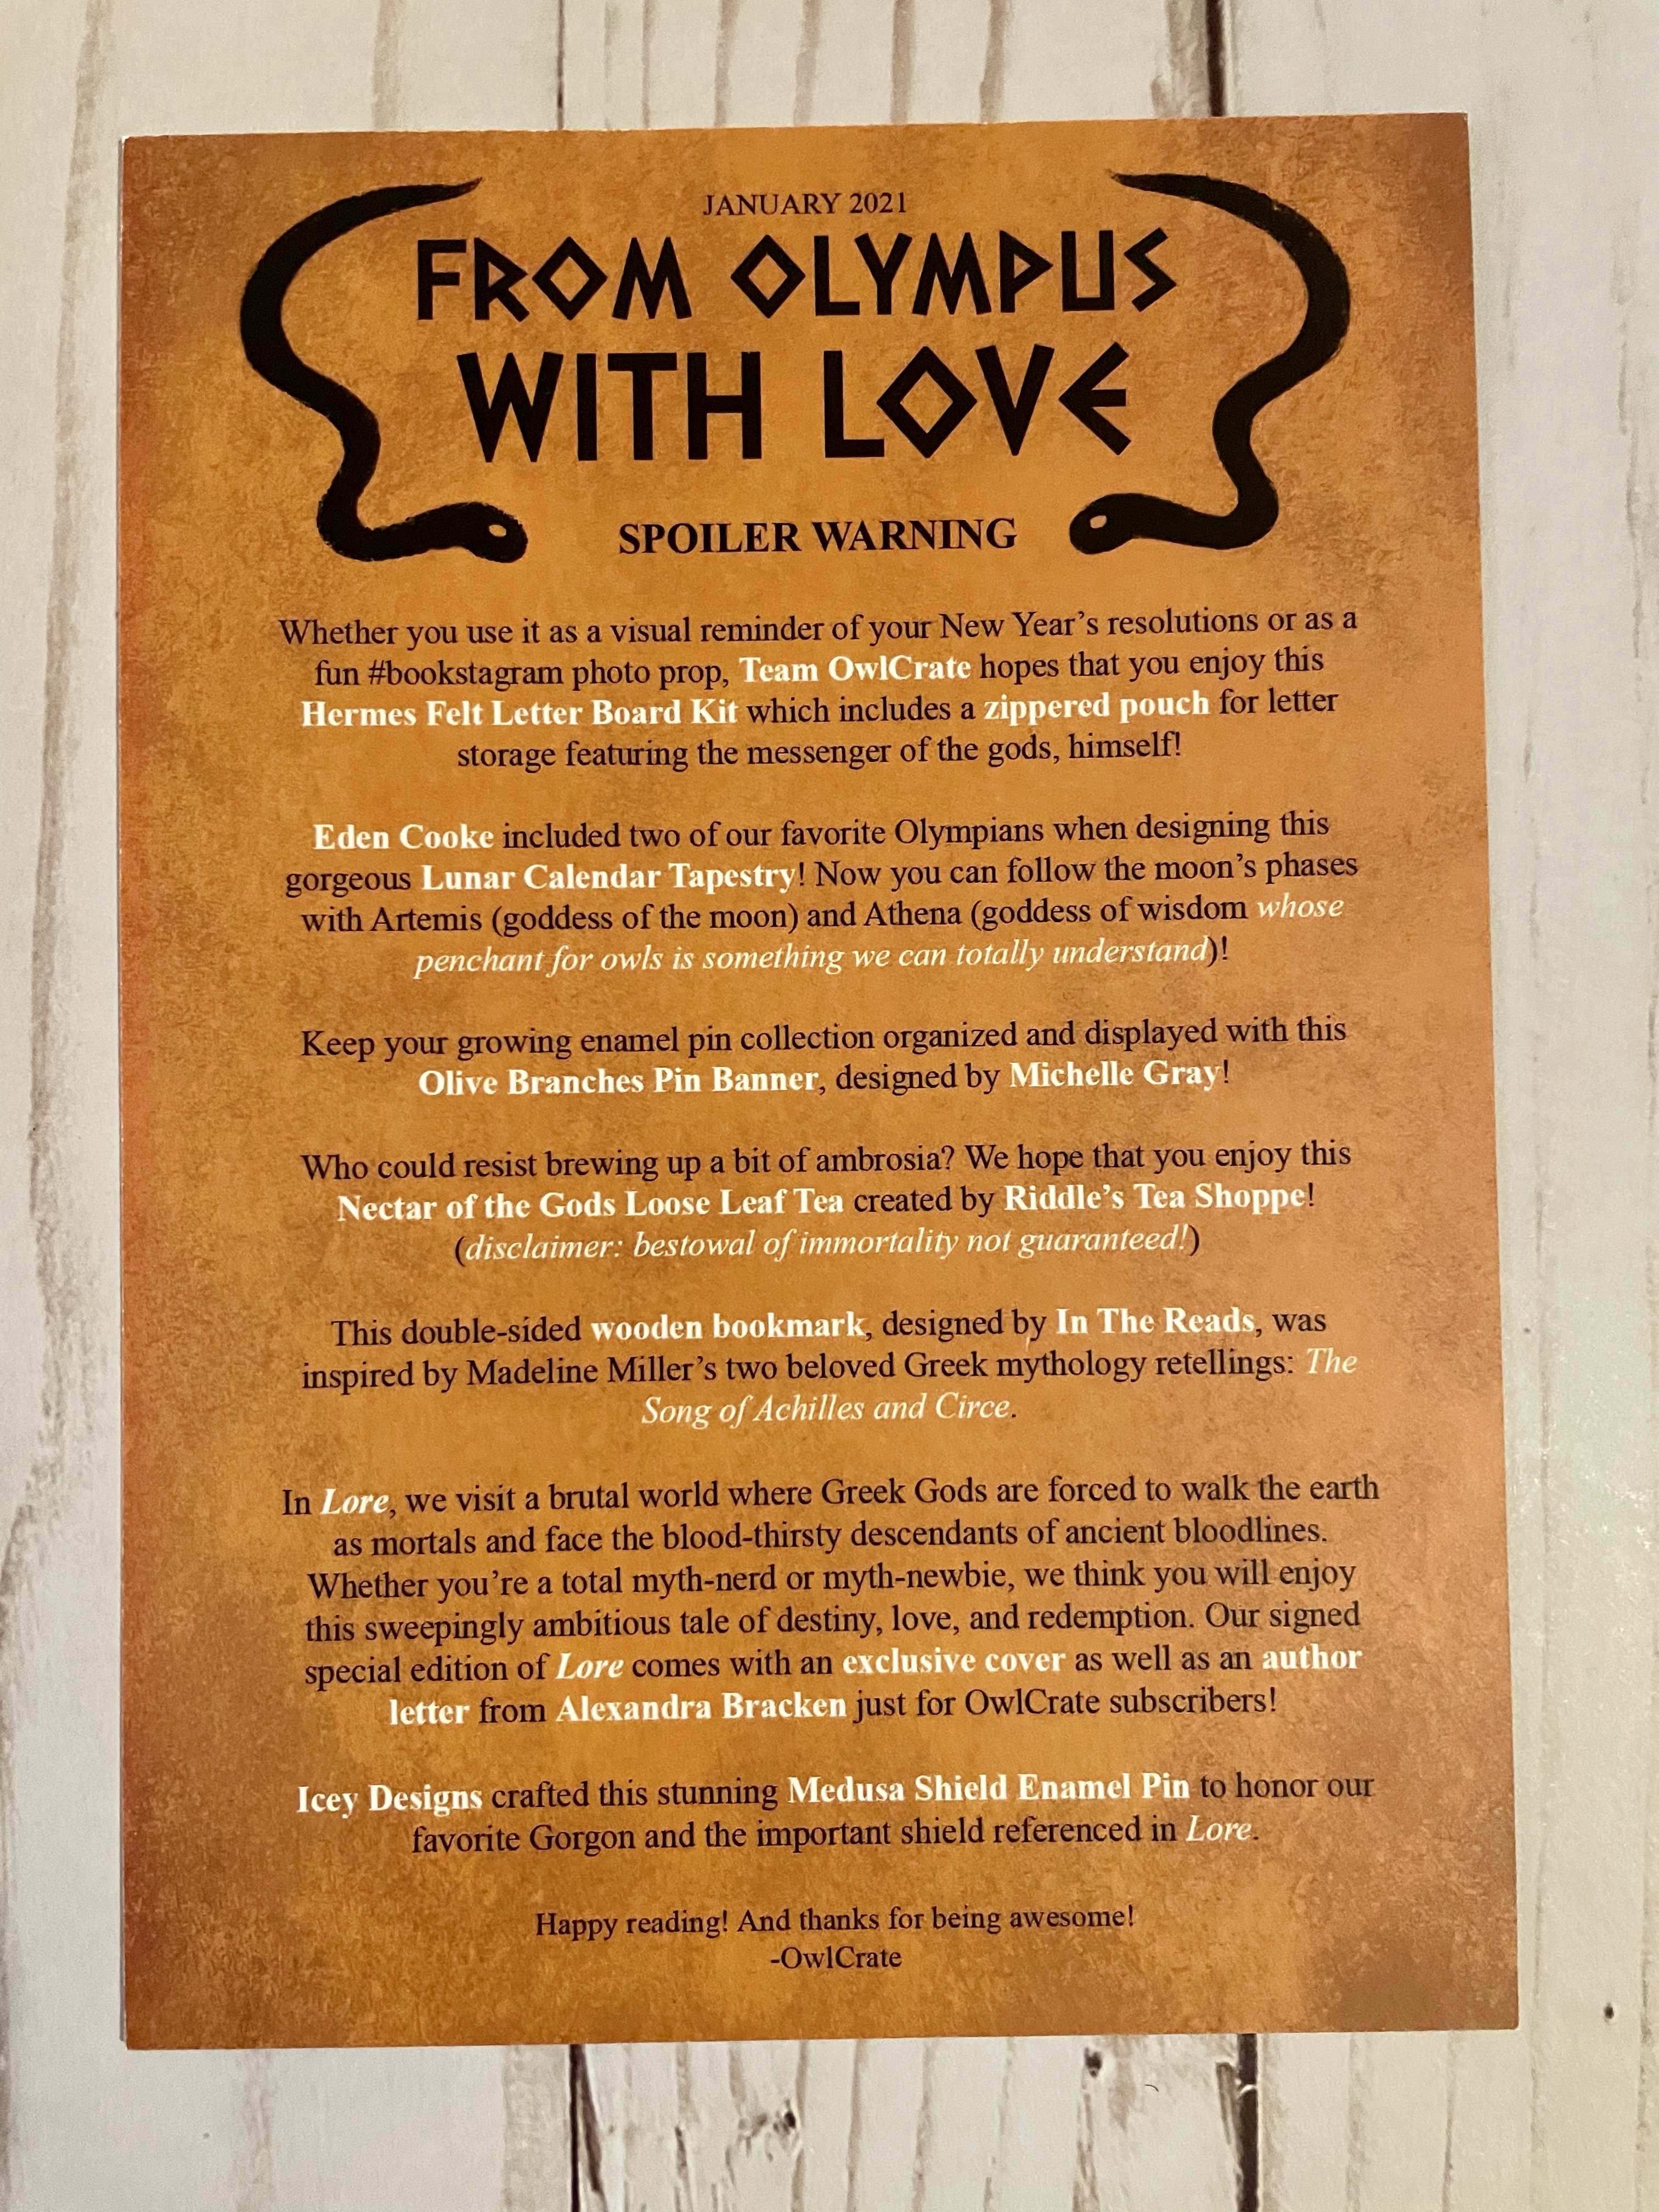 JANUARY 2021
FROM OLYMPUS
WITH LOVE
SPOILER WARNING
Whether you use it as a visual reminder of your New Year's resolutions or as a
fun #bookstagram photo prop, Team OwlCrate hopes that you enjoy this
Hermes Felt Letter Board Kit which includes a zippered pouch for letter
storage featuring the messenger of the gods, himself!
Eden Cooke included two of our favorite Olympians when designing this
gorgeous Lunar Calendar Tapestry! Now you can follow the moon's phases
with Artemis (goddess of the moon) and Athena (goddess of wisdom whose
penchant for owls is something we can totally understand)!
Keep your growing enamel pin collection organized and displayed with this
Olive Branches Pin Banner, designed by Michelle Gray!
Who could resist brewing up a bit of ambrosia? We hope that you enjoy this
Nectar of the Gods Loose Leaf Tea created by Riddle's Tea Shoppe!
(disclaimer: bestowal of immortality not guaranteed!)
This double-sided wooden bookmark, designed by In The Reads, was
inspired by Madeline Miller's two beloved Greek mythology retellings: The
Song of Achilles and Circe.
In Lore, we visit a brutal world where Greek Gods are forced to walk the earth
as mortals and face the blood-thirsty descendants of ancient bloodlines.
Whether you're a total myth-nerd or myth-newbie, we think you will enjoy
this sweepingly ambitious tale of destiny, love, and redemption. Our signed
special edition of Lore comes with an exclusive cover as well as an author
letter from Alexandra Bracken just for OwlCrate subscribers!
Icey Designs crafted this stunning Medusa Shield Enamel Pin to honor our
favorite Gorgon and the important shield referenced in Lore.
Happy reading! And thanks for being awesome!
-OwlCrate